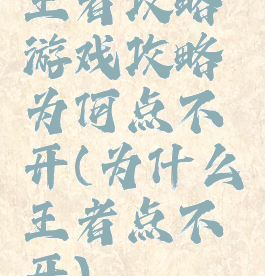 王者攻略
游戏攻略
为何点不
开(为什么
王者点不
开)